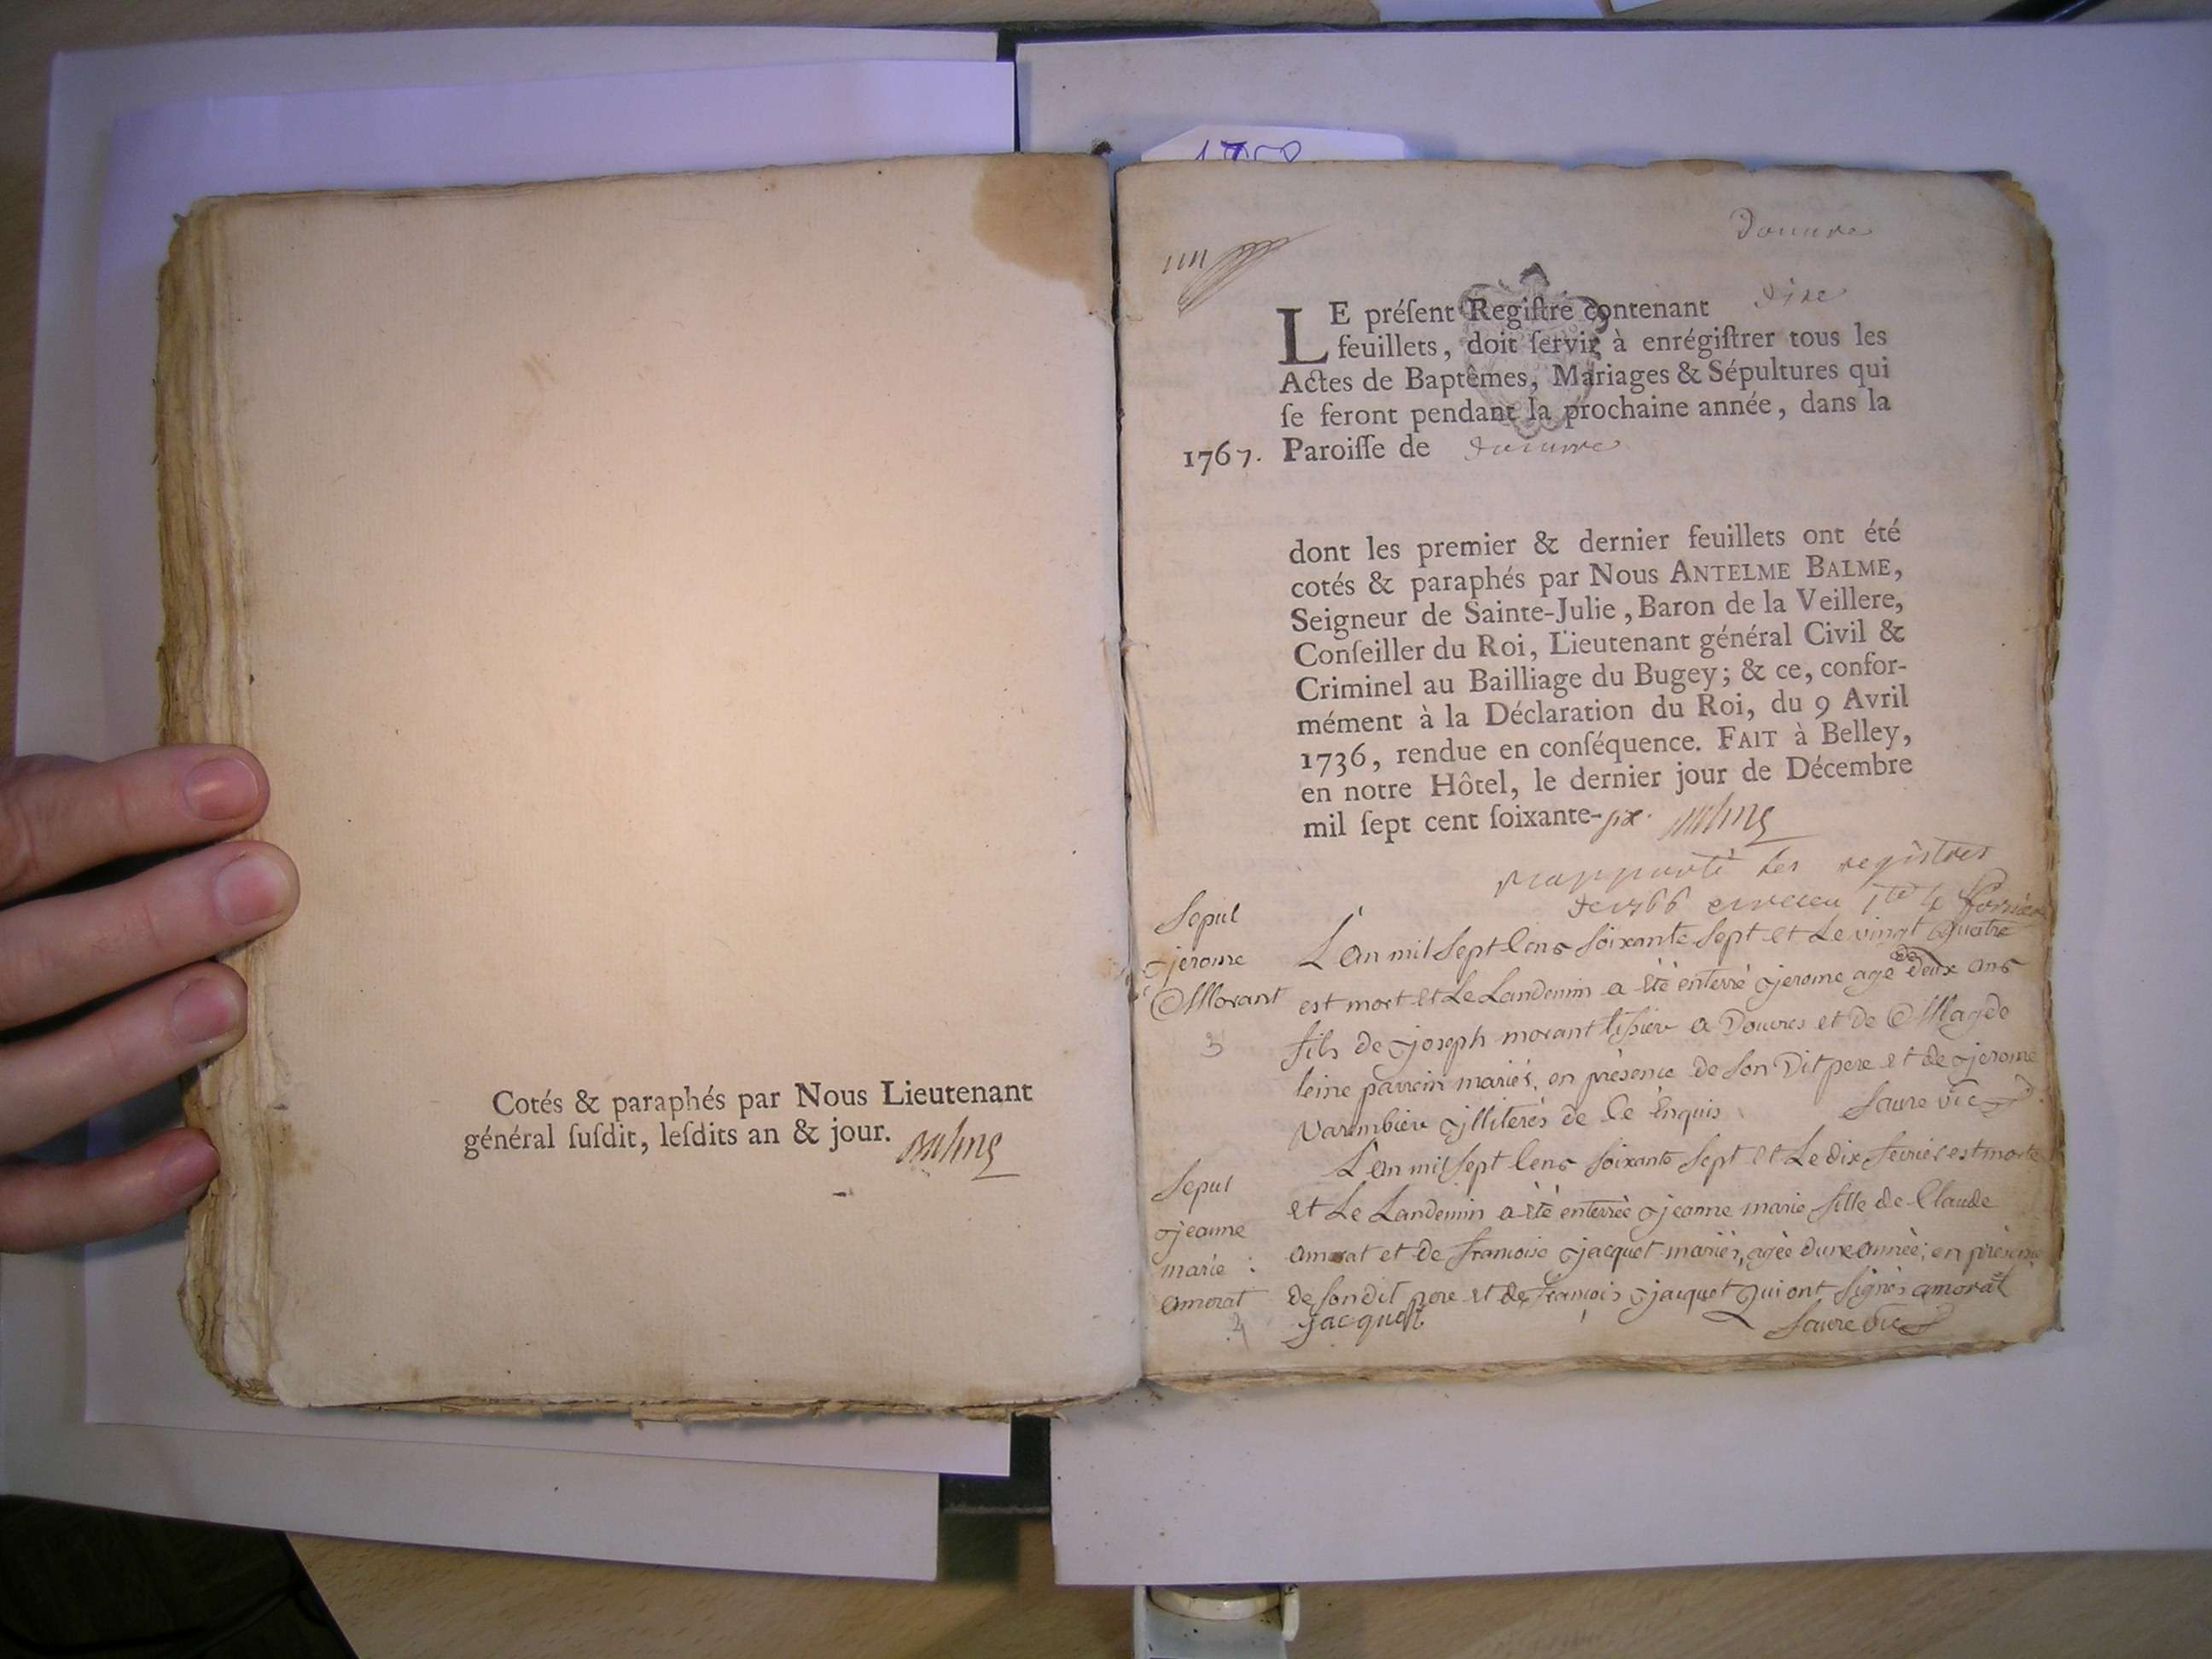 Cotés & paraphés par Nous Lieutenant
général ſuſdit, leſdits an & jour.
Douvre
LE préſent Regiſtre contenant dixe
feuillets, doit ſervir à enrégiſtrer tous les
Actes de Baptêmes, Mariages & Sépultures qui
ſe feront pendant la prochaine année, dans la
1767. Paroiſſe de Douvre
dont les premier & dernier feuillets ont été
cotés & paraphés par Nous ANTELME BALME,
Seigneur de Sainte-Julie, Baron de la Veillere,
Conſeiller du Roi, Lieutenant général Civil &
Criminel au Bailliage du Bugey; & ce, confor-
mément à la Déclaration du Roi, du 9 Avril
1736, rendue en conſéquence. FAIT à Belley,
en notre Hôtel, le dernier jour de Décembre
mil ſept cent ſoixante-six.
rapporté les registres
de 1766
Sepul
jerome
Morant
3
L'an mil Sept Cens Soixante Sept et Le vingt Quatre
est mort et Le Landemin a été enterré jerome agé de deux ans
fils de joseph morant tissier a Douvres et de Magde
leine parrein mariés, en présence de Son Dit pere et de jerome
Varambier illiterés de Ce Enquis Favre vic
Sepul
jeanne
marie
amorat
4
L'an mil Sept Cens Soixante Sept et Le dix fevrier est morte
et Le Landemin a été enterrée jeanne marie fille de Claude
amorat et de francoise jacquet mariés, agée dune année, en présence
de Son dit pere et de francois jacquet Qui ont Signés amorat
jacquet Favre vic